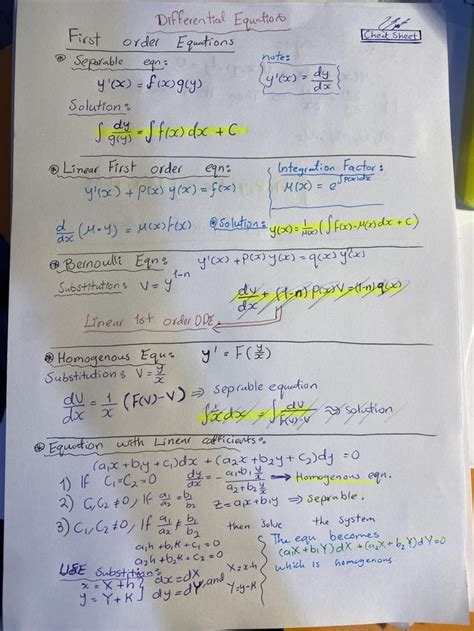 Differential Equations
Cheat Sheet
First order Equations
* Separable eqn:
note:
y'(x) = f(x) g(y)
y'(x) = dy/dx
Solution:
∫ dy/g(y) = ∫ f(x) dx + C
* Linear First order eqn:
Integration Factor:
y'(x) + P(x) y(x) = f(x)
M(x) = e^∫P(x)dx
d/dx (M·y) = M(x) f(x)
* Solution: y(x) = 1/M(x) (∫ f(x)·M(x) dx + C)
* Bernoulli Eqn: y'(x) + P(x) y(x) = q(x) y^n(x)
Substitution: V = y^1-n
dV/dx + (1-n) P(x) V = (1-n) q(x)
Linear 1st order ODE
* Homogenous Equ: y' = F(y/x)
Substitution: V = y/x
dV/dx = 1/x (F(V)-V) ⇒ seprable equation
∫ 1/x dx = ∫ dV/F(V)-V ⇒ solution
* Equation with Linear coefficients:
(a₁x + b₁y + c₁)dx + (a₂x + b₂y + c₂)dy = 0
1) If C₁=C₂=0 dy/dx = - a₁+b₁ y/x / a₂+b₂ y/x → Homogenous eqn.
2) C₁,C₂ ≠ 0, If a₁/a₂ = b₁/b₂ z = a₁x + b₁y ⇒ seprable.
3) C₁,C₂ ≠ 0, If a₁/a₂ ≠ b₁/b₂ then solve the system
a₁h + b₁K + C₁ = 0
a₂h + b₂K + C₂ = 0
The equ becomes
(a₁X + b₁Y)dX + (a₂X + b₂Y)dY = 0
which is homogenous
USE Substition:
x = X + h
y = Y + K
dx = dX
dy = dY, and
X = x-h
Y = y-K